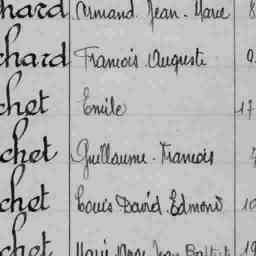 hard Armand Jean-Marie 8
chard Francois Auguste
chet Emile 17
chet Guillaume-Francois
chet Louis David Edmond 10
chet Marie Jean Baptiste 19